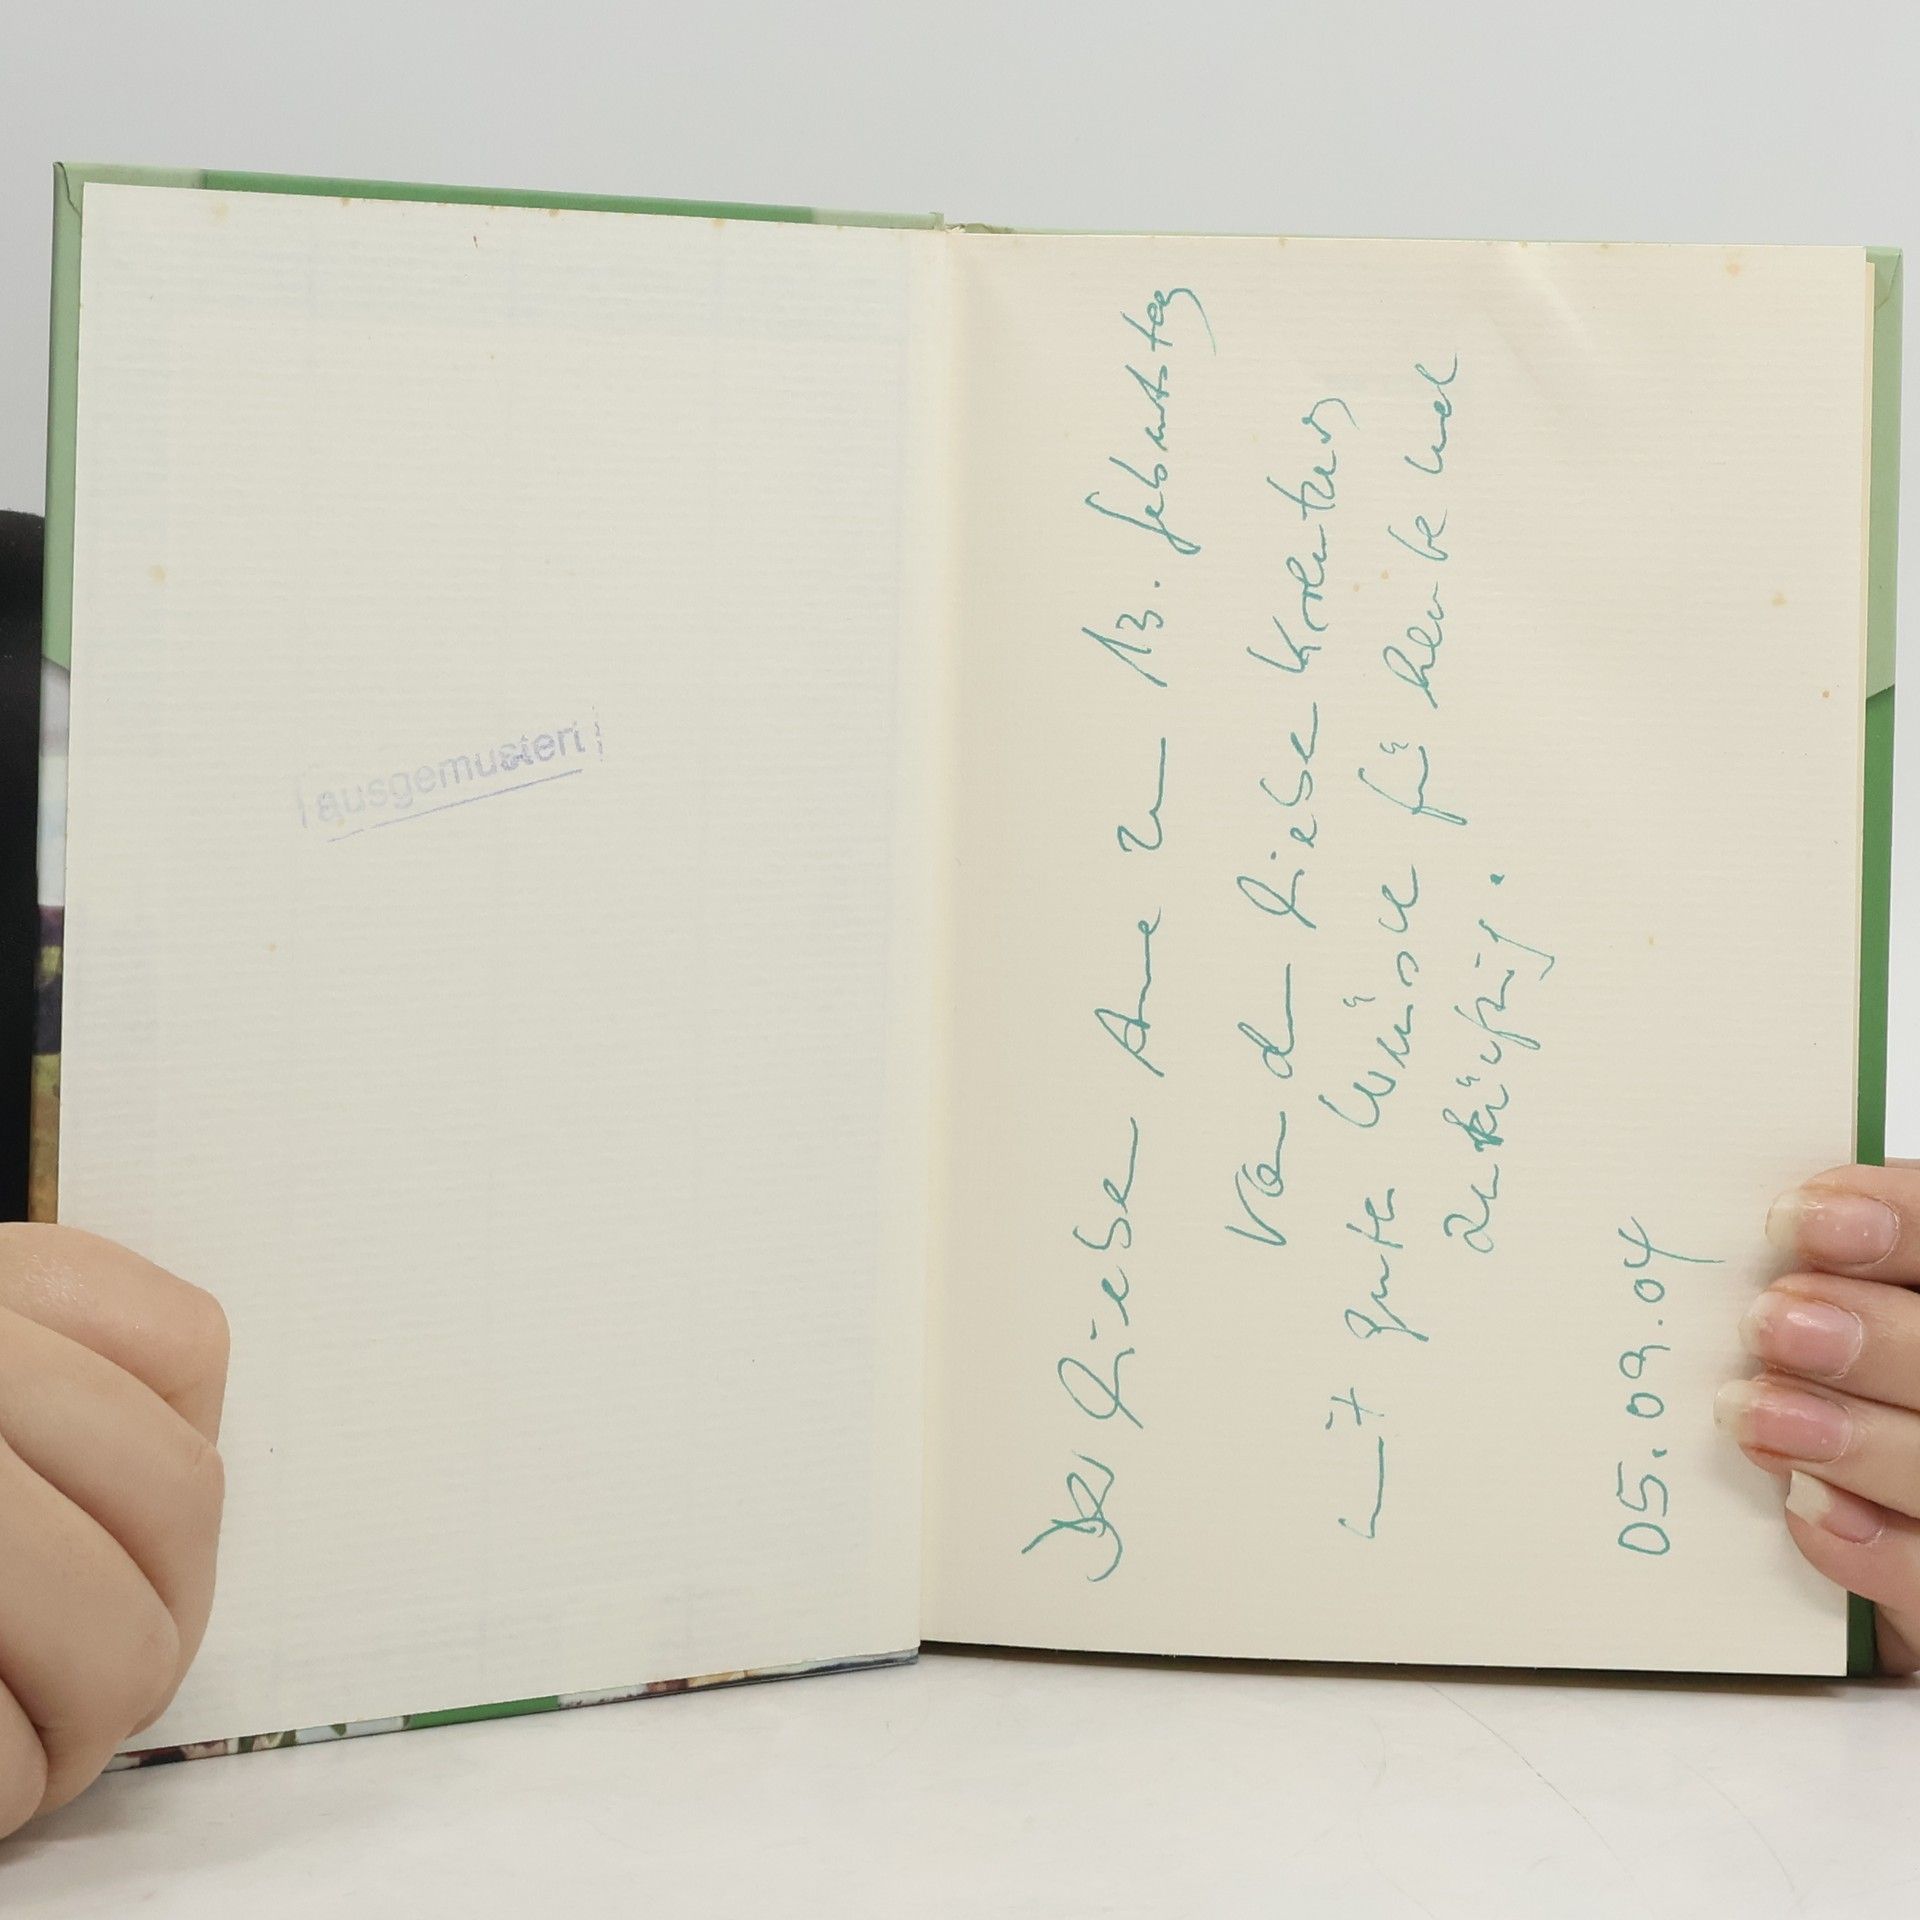 ausgemustert
Der lieben Anne zum 13. Geburtstag
Von den lieben
mit guten Wünschen für heute und
zukünftig.
05.09.04